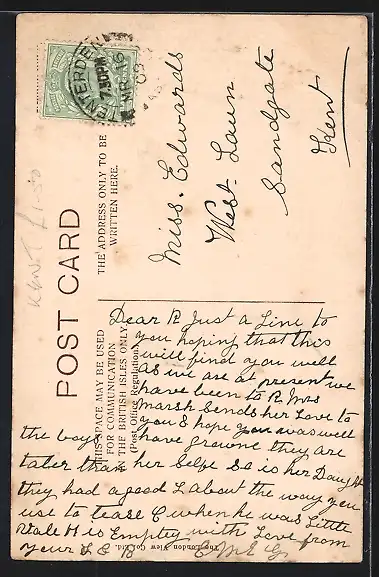 POST CARD
THE ADDRESS ONLY TO BE
WRITTEN HERE.
THIS SPACE MAY BE USED
FOR COMMUNICATION
THE BRITISH ISLES ONLY.
(Post Office Regulation)
TENTERDEN
7.30PM
MR 16
09
KENT £1-50
Miss. Edwards
West Lawn
Sandgate
Kent
Dear R Just a Line to
you hoping that this
will find you well
as we are at present we
have been to R Mrs
Marsh Sends her Love to
you & hope you was well
the boys have growne they are
taler than her Selfe so is her Daught
they had a good L about the way you
use to tease C when he was Little
H is Emptey with Love from
your S E B
The London View Co. Ltd.